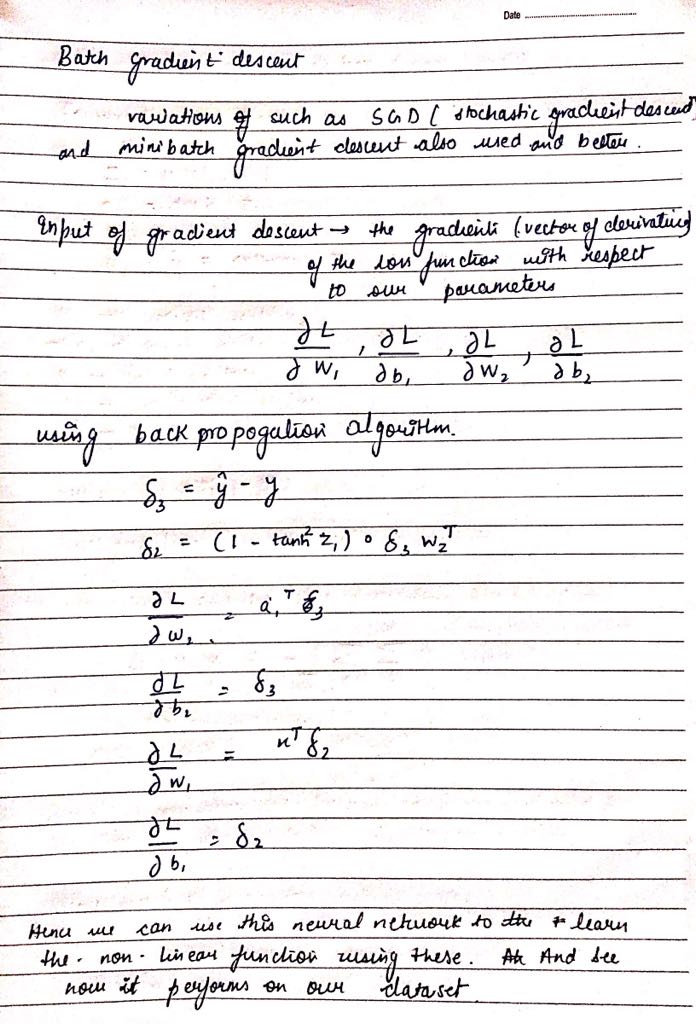 Date
Batch gradient descent
variations of such as SGD ( stochastic gradient descent)
and minibatch gradient descent also used and better.
Input of gradient descent → the gradients (vector of derivatives)
of the loss function with respect
to our parameters
∂L/∂W₁ , ∂L/∂b₁ , ∂L/∂W₂ , ∂L/∂b₂
using back propogation algorithm.
δ₃ = ŷ - y
δ₂ = (1 - tanh² z₁) ∘ δ₃ W₂ᵀ
∂L/∂W₂ = a₁ᵀ δ₃
∂L/∂b₂ = δ₃
∂L/∂W₁ = xᵀ δ₂
∂L/∂b₁ = δ₂
Hence we can use this neural network to the learn
the - non - linear function using these. And see
how it performs on our dataset